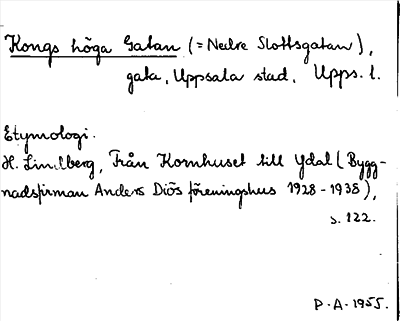 Kongs höga Gatan (= Nedre Slottsgatan),
gata, Uppsala stad, Upps. l.
Etymologi.
H. Lindberg, Från Kornhuset till Ydal (Bygg-
nadsfirman Anders Diös föreningshus 1928-1938),
s. 122.
P. A. 1955.